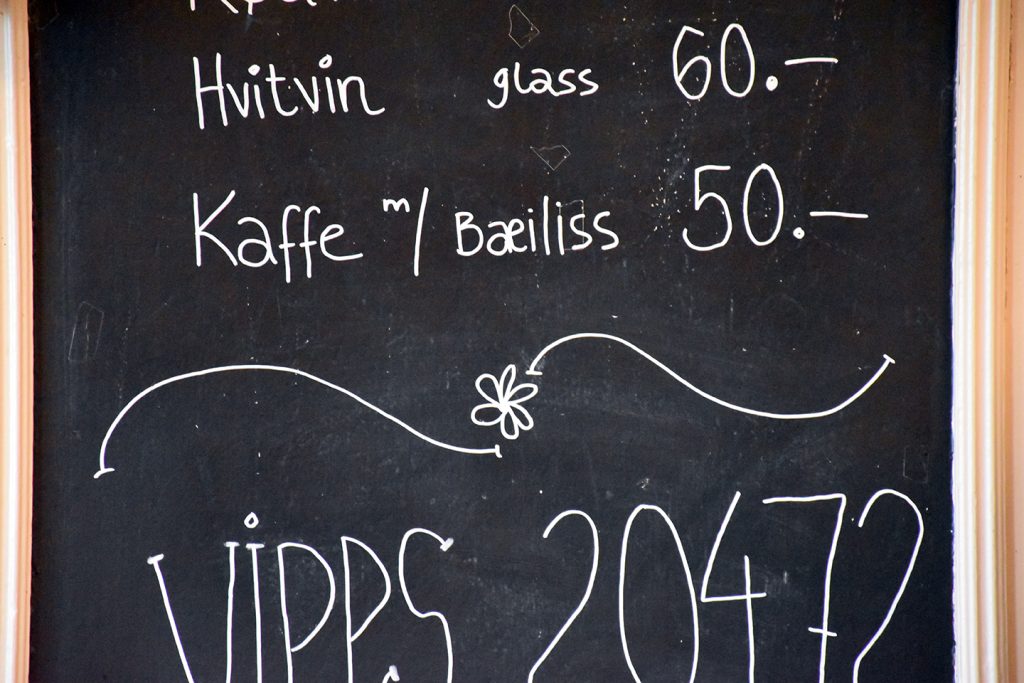 Hvitvin glass 60.-
Kaffe m/ Bæiliss 50.-
VIPPS 20472